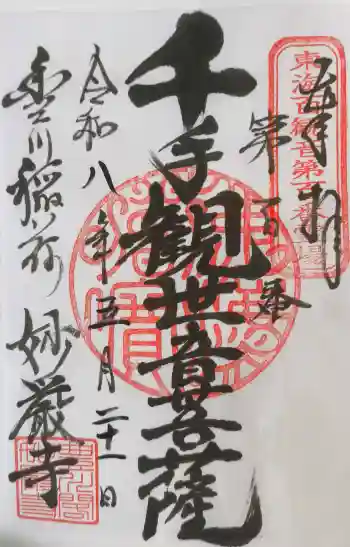 東海百観音第百番霊場
奉拝
第百番
千手観世音菩薩
令和八年五月二十一日
豊川稲荷 妙厳寺